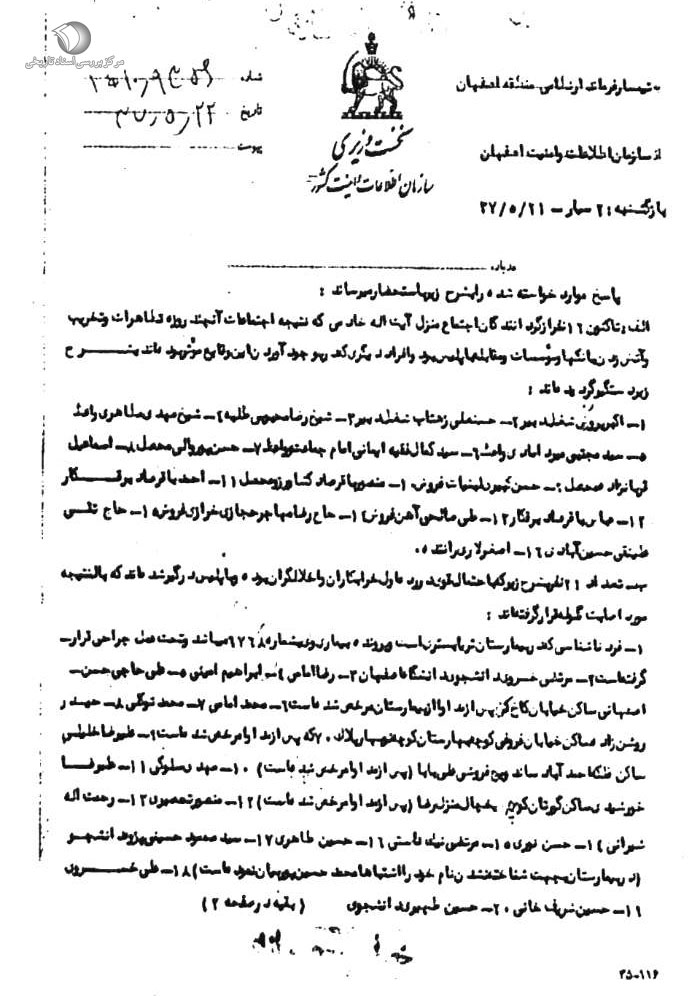 مرکز بررسی اسناد تاریخی
شماره
تاریخ
پیوست
نخست وزیری
سازمان اطلاعات و امنیت کشور
تیمسار فرماندار نظامی منطقه اصفهان
از سازمان اطلاعات و امنیت اصفهان
بازگشت به: ۲ سیار - ۳۷/۵/۲۱
درباره
پاسخ موارد خواسته شده را بشرح زیر باستحضار میرساند :
الف: تاکنون ۱۶ نفر از گردانندگان اجتماع منزل آیت اله خادمی که نتیجه اجتماعات آنچند روزه تظاهرات و تخریب
و آتش زدن بانکها و مؤسسات و مقابله با پلیس بود و افراد دیگری که در بوجود آوردن این وقایع مؤثر بوده اند بشرح
زیر دستگیر گردیده اند :
۱- اکبر پرورش شغل دبیر ۲- حسنعلی زهتاب شغل دبیر ۳- شیخ رضا حبیبی طلبه ۴- شیخ مهدی مظاهری واعظ
۵- سید مجتبی میردامادی واعظ ۶- سید کمال فقیه ایمانی امام جماعت و واعظ ۷- حسن پوردلالی محصل ۸- اسماعیل
قربانزاده محصل ۹- حسن لبنیات فروش ۱۰- منصور باقرصاد کشاورز و محصل ۱۱- احمد باقرصاد برقکار
۱۲- عباس باقرصاد برقکار ۱۳- علی صالحی آهن فروش ۱۴- حاج رضا مهاجر حجازی خرازی فروش ۱۵- حاج تقی
حسین آبادی ۱۶- اصغر لاری راننده
ب- تعداد ۲۱ نفر بشرح زیر که باحتمال قوی در ردیف عاملین خرابکاران و اخلالگران بوده و با پلیس درگیر شده اند که بالنتیجه
مورد اصابت گلوله قرار گرفته اند :
۱- فرد ناشناسی که در بیمارستان ثریا بستری است و پرونده بیماری وی بشماره ۶۷۶۸ میباشد و تحت عمل جراحی قرار
گرفته است ۲- مرتضی خسروی دانشجوی دانشگاه اصفهان ۳- رضا امامی ۴- ابراهیم امینی ۵- علی حاجی حسن
اصفهانی ساکن خیابان کاخ که پس از مداوا از بیمارستان مرخص شده است ۶- محمد امامی ۷- محمد توکلی ۸- حیدر
روشن زاده ساکن خیابان فروغی کوچه بهارستان کوچه نوبهار پلاک ۷۰ که پس از مداوا مرخص شده است ۹- علیرضا خلیلی
ساکن فلکه احمدآباد ساندویچ فروشی علی بابا (پس از مداوا مرخص شده است) ۱۰- مهدی سلوکی ۱۱- علیرضا
خورشیدی ساکن گورتان کوی یخچال منزل رضا (پس از مداوا مرخص شده است) ۱۲- منصور ۱۳- رحمت اله
شیرانی ۱۴- حسن نوری ۱۵- مرتضی نیک فاستی ۱۶- حسین طاهری ۱۷- سید محمود حسینی پژوه دانشجو
(در بیمارستان بجهت شناخته نشدن نام خود را اشتباها محمد حسین پوریمان نموده است) ۱۸- علی خسروی
۱۹- حسین شریف خانی ۲۰- حسین ظهیری دانشجوی (بقیه در صفحه ۲)
۳۵-۱۱۶